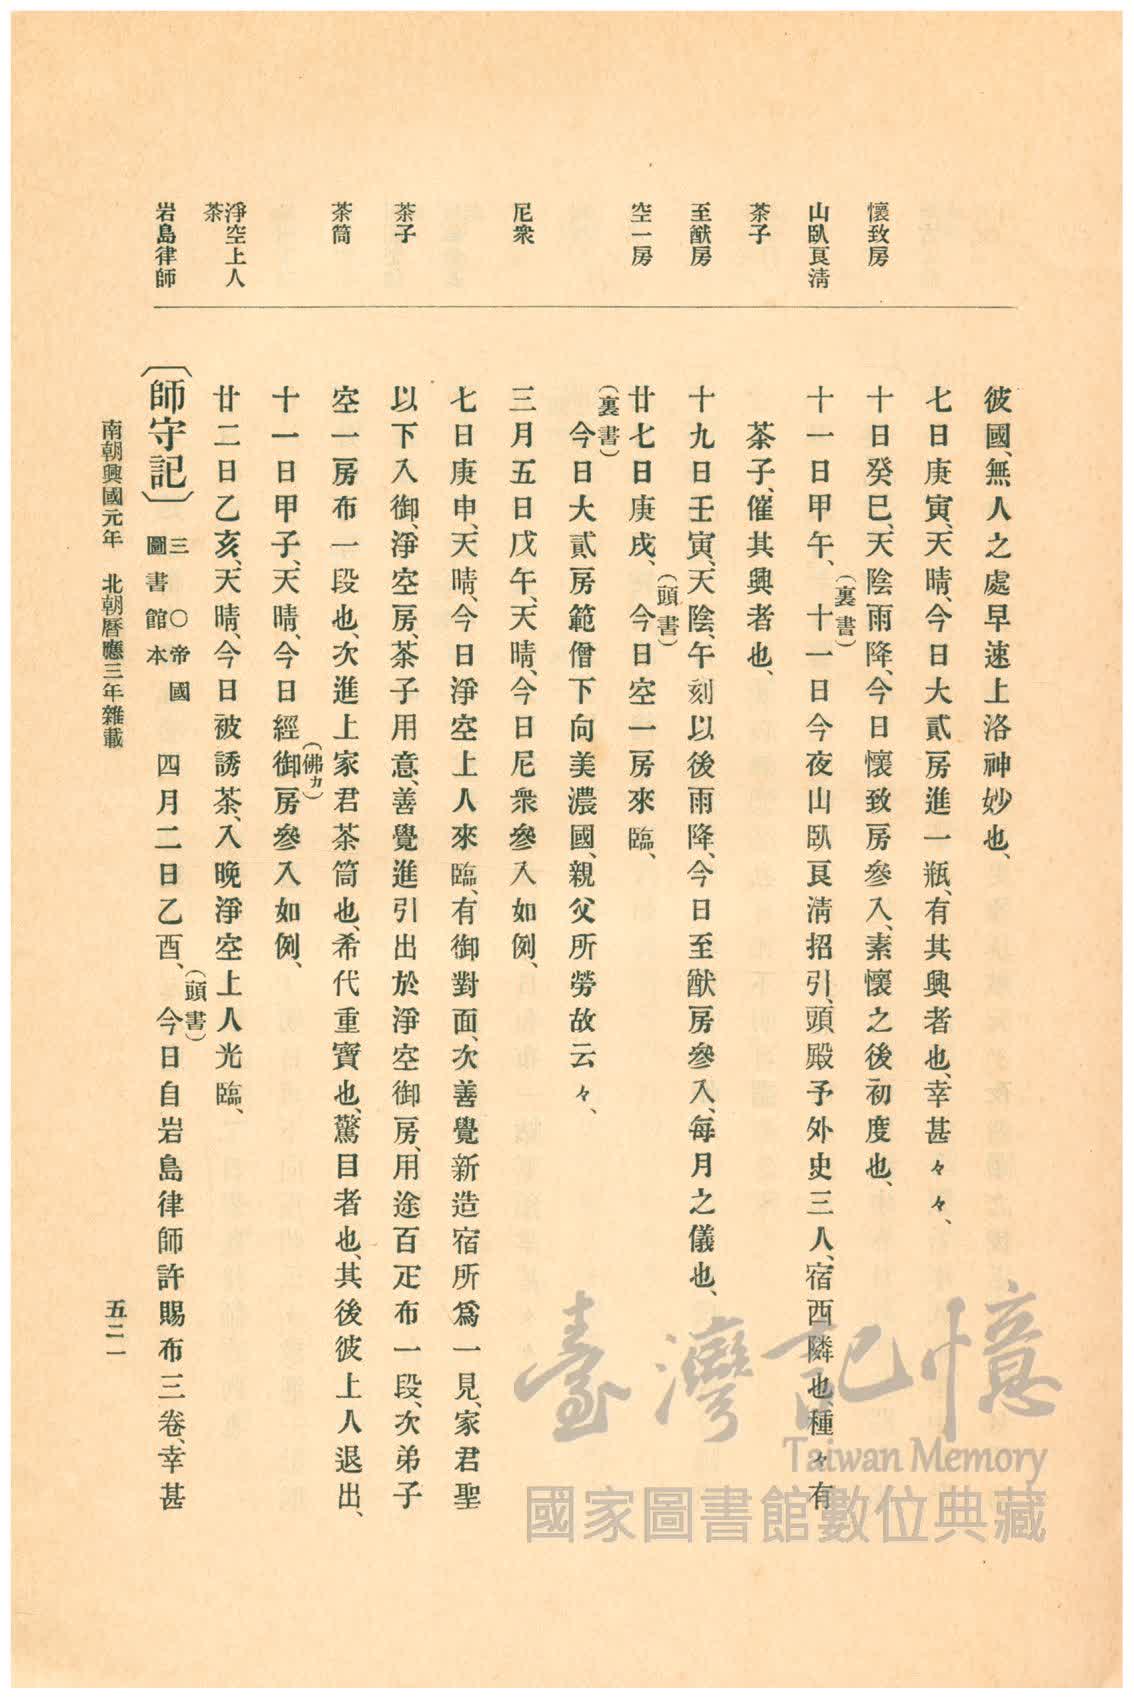 懷致房
山臥良淸
茶子
至猷房
空一房
尼衆
茶子
茶筒
淨空上人
茶
岩島律師
彼國、無人之處早速上洛神妙也、
七日庚寅、天晴、今日大貳房進一瓶、有其興者也、幸甚々々、
十日癸巳、天陰雨降、今日懷致房參入、素懷之後初度也、
十一日甲午、(裏書)十一日今夜山臥良淸招引、頭殿予外史三人、宿西隣也、種々有
茶子、催其興者也、
十九日壬寅、天陰、午刻以後雨降、今日至猷房參入、每月之儀也、
廿七日庚戌、(頭書)今日空一房來臨、
(裏書)今日大貳房範僧下向美濃國、親父所勞故云々、
三月五日戊午、天晴、今日尼衆參入如例、
七日庚申、天晴、今日淨空上人來臨、有御對面、次善覺新造宿所爲一見、家君聖
以下入御、淨空房、茶子用意、善覺進引出於淨空御房、用途百疋布一段、次弟子
空一房布一段也、次進上家君茶筒也、希代重寶也、驚目者也、其後彼上人退出、
十一日甲子、天晴、今日經御(佛カ)房參入如例、
廿二日乙亥、天晴、今日被誘茶、入晚淨空上人光臨、
〔師守記〕 三 〇帝國圖書館本 四月二日乙酉、(頭書)今日自岩島律師許賜布三卷、幸甚
南朝興國元年 北朝曆應三年雜載
五二一
臺灣記憶
Taiwan Memory
國家圖書館數位典藏